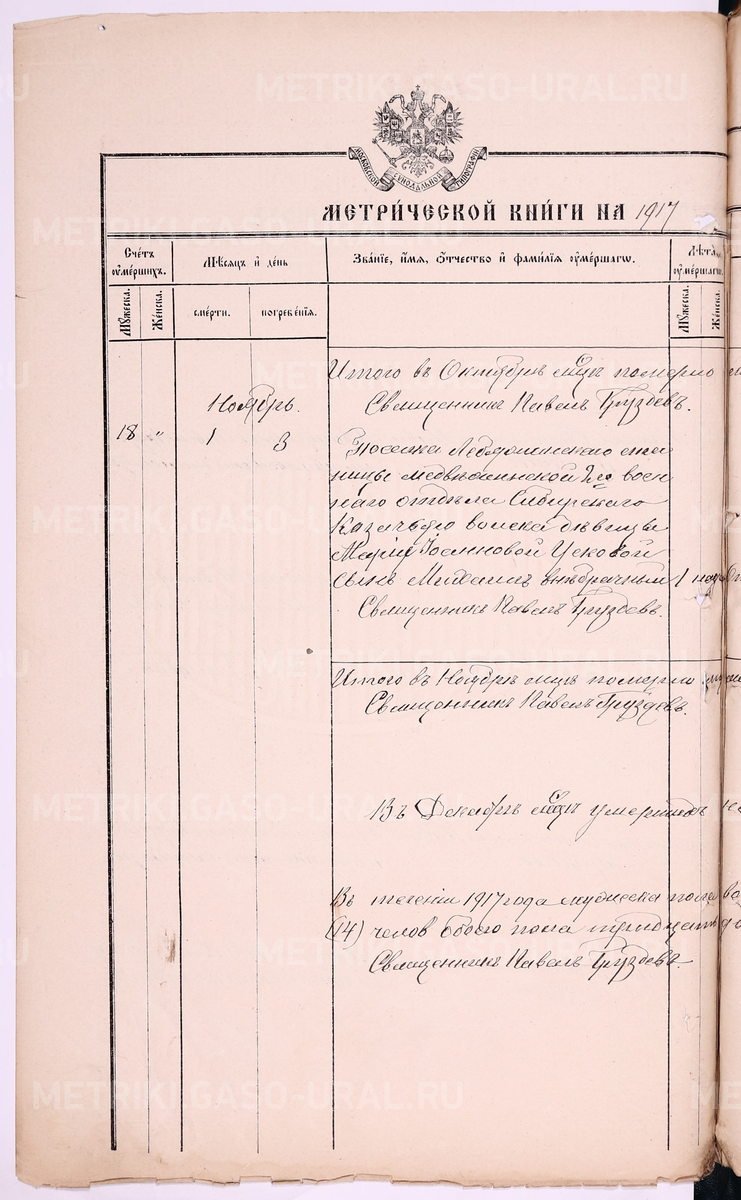 METRIKI.GASO-URAL.RU
МОСКОВСКОЙ СУНОДАЛЬНОЙ ТИПОГРАФІИ
МЕТРИ́ЧЕСКОЙ КНИ́ГИ НА 1917
Сче́тъ ᲂу҆ме́ршихъ.
Мѣ́сяцъ и҆ де́нь
Зва́ніе, и҆́мѧ, ѻ҆́тчество и҆ фами́лїѧ ᲂу҆ме́ршагѡ.
Лѣ́та ᲂу҆ме́ршагѡ.
Мꙋ́жеска.
Же́нска.
сме́рти.
погребе́нїѧ.
Мꙋ́жеска.
Же́нска.
Итого въ Октябрѣ м-цѣ померло
Священникъ Павелъ Груздевъ.
Ноябрь.
18 " 1 3
Поселка Лебяжинскаго ста
ницы 2го воен
наго отдѣла Сибирскаго
Казачьяго войска дѣвицы
Маріи Іоанновой Усковой
сынъ Михаилъ внѣбрачный 1
Священникъ Павелъ Груздевъ.
Итого въ Ноябрѣ мцѣ померло
Священникъ Павелъ Груздевъ.
Въ Декабрѣ мцѣ умершихъ
Въ теченіи 1917 года мужеска пола
(14) челов обоего пола тридцать
Священникъ Павелъ Груздевъ